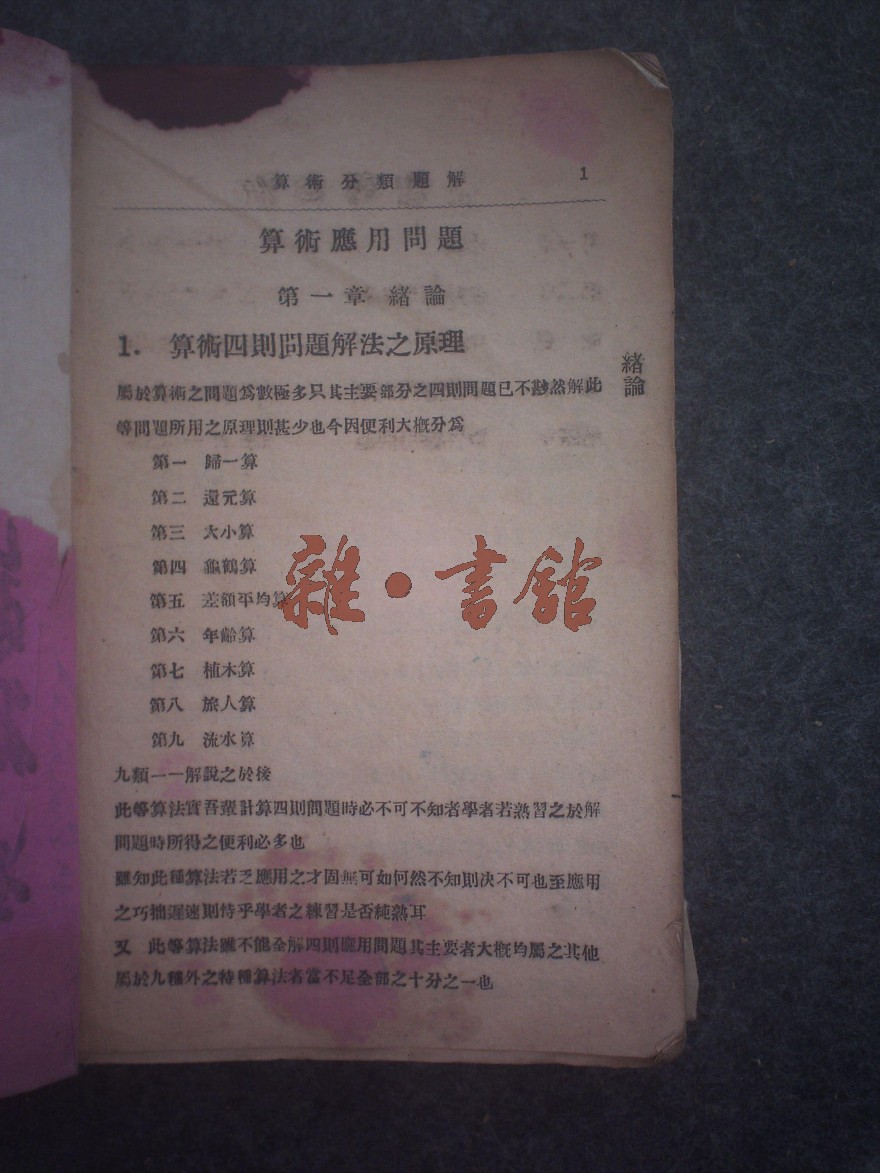 算術分類題解 1
算術應用問題
第一章 緒論
1. 算術四則問題解法之原理
緒論
屬於算術之問題爲數極多只其主要部分之四則問題已不尠然解此
等問題所用之原理則甚少也今因便利大概分爲
第一 歸一算
第二 還元算
第三 大小算
第四 龜鶴算
第五 差額平均算
第六 年齡算
第七 植木算
第八 旅人算
第九 流水算
九類一一解說之於後
此等算法實吾輩計算四則問題時必不可不知者學者若熟習之於解
問題時所得之便利必多也
雖知此種算法若乏應用之才固無可如何然不知則決不可也至應用
之巧拙遲速則恃乎學者之練習是否純熟耳
又 此等算法雖不能全解四則應用問題其主要者大概均屬之其他
屬於九種外之特種算法者當不足全部之十分之一也
雜·書館